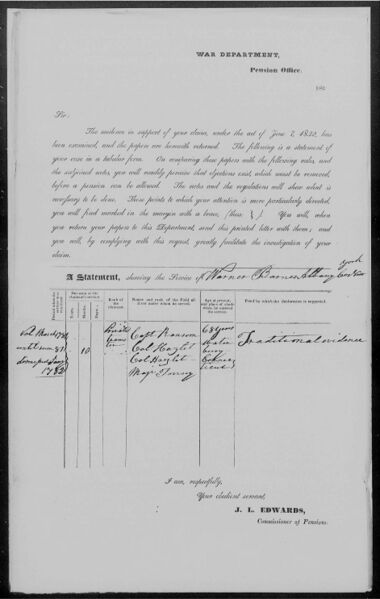 WAR DEPARTMENT,
Pension Office.
183
Sir.
The evidence in support of your claim, under the act of June 7, 1832, has
been examined, and the papers are herewith returned. The following is a statement of
your case in a tabular form. On comparing these papers with the following rules, and
the subjoined notes, you will readily perceive that objections exist, which must be removed,
before a pension can be allowed. The notes and the regulations will shew what is
necessary to be done. Those points to which your attention is more particularly directed,
you will find marked in the margin with a brace, (thus } ) You will, when
you return your papers to this Department, send this printed letter with them; and
you will, by complying with this request, greatly facilitate the investigation of your
claim.
A Statement, shewing the Service of Warner Barnes Albany York
Period when the
service was rendered.
Duration of the
claimant's service.
Years. Months. Days.
Rank of the
claimant.
Names and rank of the Field of-
ficers under whom he served.
Age at present,
and place of abode
Proof by which the declaration is supported.
1782
10
Private
Capt Ransom
Col Hazlit
Col Hazlit
Maj
68 years
Water
bury
Connec
ticut
Traditional evidence
I am, respectfully,
Your obedient servant,
J. L. EDWARDS,
Commissioner of Pensions.